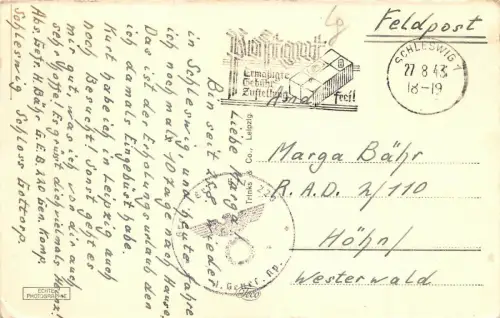 Feldpost
SCHLESWIG 1
27.8.43
18-19
Ermäßigte
Gebühr
Zustellung frei!
An
Marga Bähr
R.A.D. 2/110
Höhn/
Westerwald
Liebe Marga!
Bin seit wieder
in Schleswig, und heute fahre
ich nochmals 10 Tage nach Hause.
Das ist der Erholungsurlaub den
ich damals eingebüßt habe.
Kurt habe ich in Leipzig auch
noch besucht! Sonst geht es
mir gut, was ich von dir auch
sehr hoffe! Es grüsst dich vielmals
Abs. Gefr. H. Bähr G.E.B. 220 Gen. Komp.
Schleswig Schloss Gottorp.
Trinks & Co., Leipzig
ECHTE PHOTOGRAPHIE